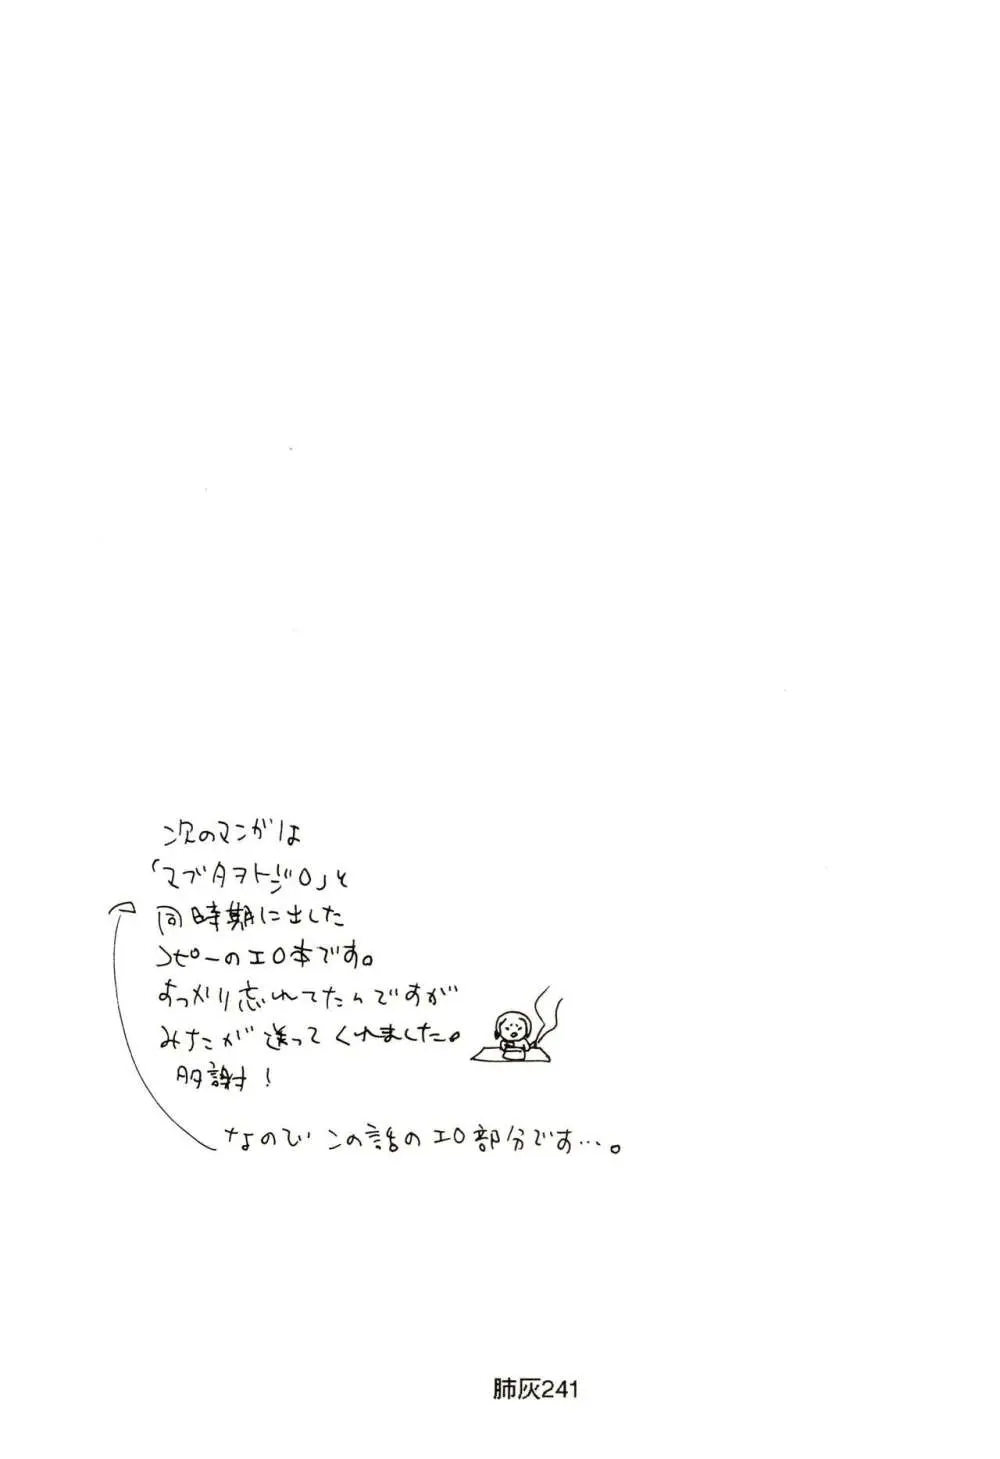 次のマンガは
「マブタヲトジロ」と
同時期に出した
コピーのエロ本です。
すっかり忘れてたんですが
みたが送ってくれました。
多謝！
なので この話の エロ部分です…。
肺灰241